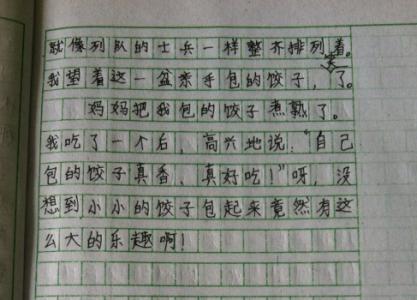 就像列队的士兵一样整齐排列着。
我望着这一盆亲手包的饺子，笑了。
妈妈把我包的饺子煮熟了。
我吃了一个后，高兴地说："自己
包的饺子真香，真好吃！"呀，没
想到小小的饺子包起来竟然有这
么大的乐趣啊！